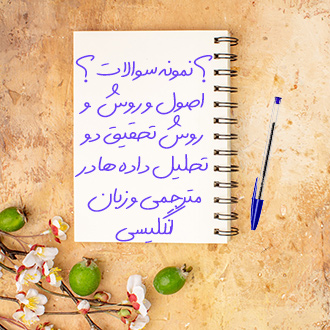 ؟ نمونه سوالات ؟
اصول و روش و
روش تحقیق دو
تحلیل داده ها در
مترجمی و زبان
انگلیسی